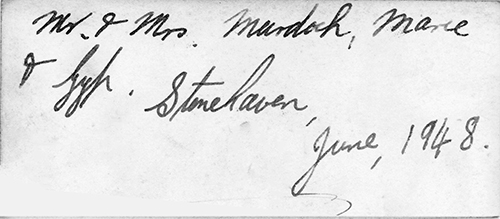 Mr. & Mrs. Murdoch, Marie
& Gyp. Stonehaven,
June, 1948.